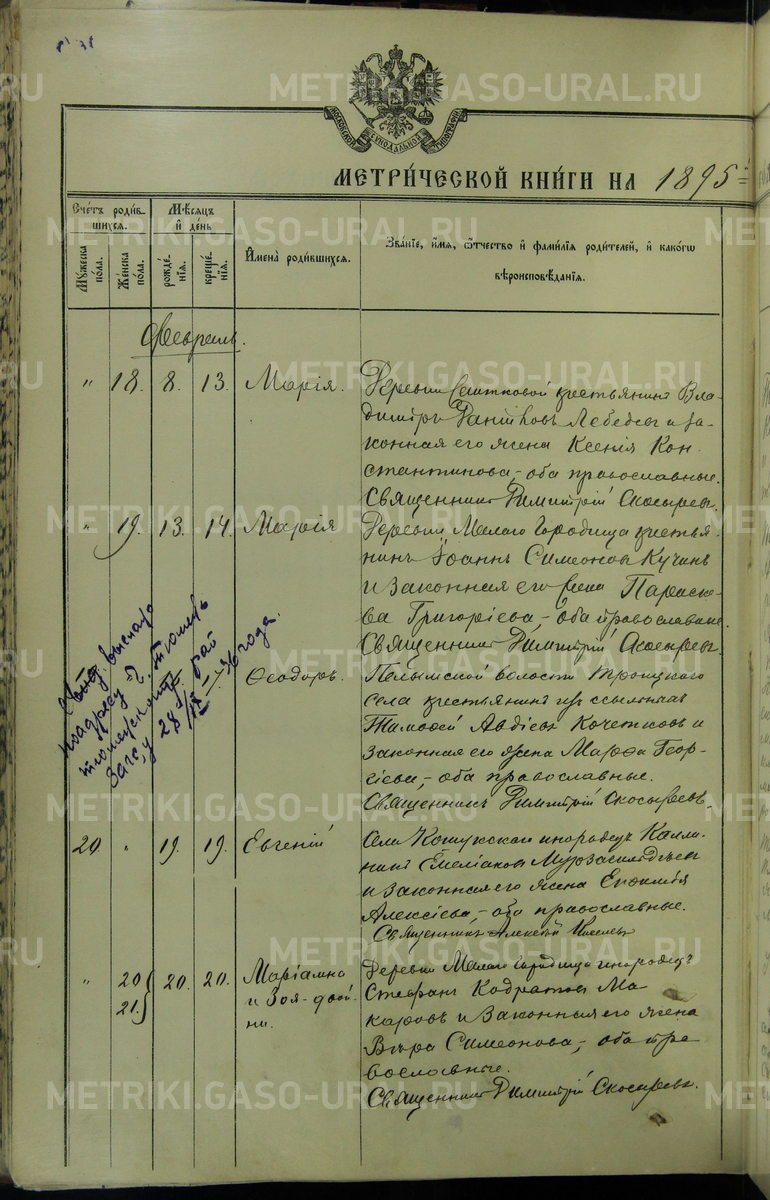 МОСКОВСКОЙ СѴНОДАЛЬНОЙ ТИПОГРАФІИ
МЕТРИ́ЧЕСКОЙ КНИ́ГИ НА 1895
Сче́тъ роди́в-
шихся.
Му́жеска по́ла.
Же́нска по́ла.
Мѣ́сяцъ
и де́нь
рожде́нія.
креще́нія.
И҆мена̀ роди́вшихся.
Зва́ніе, и҆́мя, ѻ҆́тчество и҆ фами́лія роди́телей, и҆ како́гѡ
вѣроисповѣ́данія.
Февраль.
" 18. 8. 13. Марія. Деревни крестьянинъ Вла-
димiръ Лебедевъ и за-
конная его жена Ксенія Кон-
стантинова,- оба православные.
Священникъ Димитрій Скосыревъ.
" 19. 13. 14. Марія Деревни Малаго Городища крестья-
нинъ Іоаннъ Симеоновъ Кучинъ
и законная его жена Параске-
ва Григоріева,- оба православные.
Священникъ Димитрій Скосыревъ.
Ѳеодоръ. Пелымской волости Троицкаго
села крестьянинъ изъ ссыльныхъ
Тимофей Авдіевъ Кочетковъ и
законная его жена Марѳа Геор-
гіева,- оба православные.
Священникъ Димитрій Скосыревъ.
выслано
28 года.
20 " 19. 19. Евгеній Села Кошукскаго инородецъ Калли-
никъ Емеліановъ
и законная его жена Евѳимія
Алексіева,- оба православные.
Священникъ Алексій
" 20 21. 20. 20. Маріамна
и Зоя- двой-
ни.
Деревни Малаго Городища инородецъ
Стефанъ Кодратовъ Ма-
каровъ и законная его жена
Вѣра Симеонова,- оба пра-
вославные.
Священникъ Димитрій Скосыревъ.
METRIKI.GASO-URAL.RU